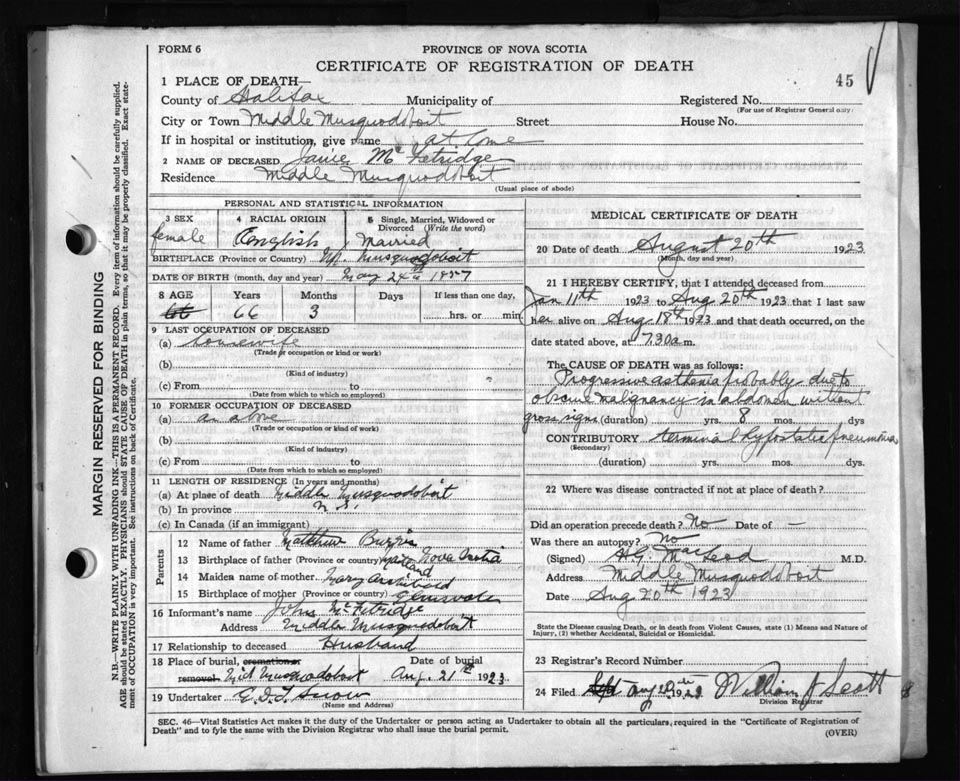 FORM 6
PROVINCE OF NOVA SCOTIA
CERTIFICATE OF REGISTRATION OF DEATH
45
1 PLACE OF DEATH—
County of Halifax Municipality of Registered No.
(For use of Registrar General only)
City or Town Middle Musquodoboit Street House No.
If in hospital or institution, give name at home
2 NAME OF DECEASED Janie McFetridge
Residence Middle Musquodoboit
(Usual place of abode)
PERSONAL AND STATISTICAL INFORMATION
3 SEX
female
4 RACIAL ORIGIN
English
5 Single, Married, Widowed or Divorced (Write the word)
Married
BIRTHPLACE (Province or Country) Musquodoboit
DATE OF BIRTH (month, day and year) May 24th 1857
8 AGE Years Months Days If less than one day,
66 66 3 hrs. or min.
9 LAST OCCUPATION OF DECEASED
(a) housewife
(Trade or occupation or kind or work)
(b)
(Kind of industry)
(c) From to
(Date from which to which so employed)
10 FORMER OCCUPATION OF DECEASED
(a) as above
(Trade or occupation or kind of work)
(b)
(Kind of industry)
(c) From to
(Date from which to which so employed)
11 LENGTH OF RESIDENCE (In years and months)
(a) At place of death Middle Musquodoboit
(b) In province N.S.
(c) In Canada (if an immigrant)
Parents
12 Name of father Matthew
13 Birthplace of father (Province or country) Nova Scotia
14 Maiden name of mother Mary Archibald
15 Birthplace of mother (Province or country)
16 Informant's name John McFetridge
Address Middle Musquodoboit
17 Relationship to deceased Husband
18 Place of burial, cremation or removal Mid Musquodoboit Date of burial Aug. 21st 1923
19 Undertaker
(Name and Address)
MEDICAL CERTIFICATE OF DEATH
20 Date of death August 20th 1923
(Month, day and year)
21 I HEREBY CERTIFY, that I attended deceased from
Jan 11th 1923 to Aug 20th 1923 that I last saw
her alive on Aug 18th 1923 and that death occurred, on the
date stated above, at 7.30 a.m.
The CAUSE OF DEATH was as follows:
Progressive asthenia probably due to
obscure malignancy in abdomen without
gross signs (duration) yrs. 8 mos. dys
CONTRIBUTORY terminal hypostatic pneumonia
(Secondary)
(duration) yrs. mos. dys.
22 Where was disease contracted if not at place of death?
Did an operation precede death? No Date of —
Was there an autopsy? No
(Signed) MacLeod M.D.
Address Middle Musquodoboit
Date Aug 20th 1923
State the Disease causing Death, or in death from Violent Causes, state (1) Means and Nature of
Injury, (2) whether Accidental, Suicidal or Homicidal.
23 Registrar's Record Number
24 Filed Sept Aug 192 William J Scott
Division Registrar
SEC. 46—Vital Statistics Act makes it the duty of the Undertaker or person acting as Undertaker to obtain all the particulars, required in the "Certificate of Registration of
Death" and to fyle the same with the Division Registrar who shall issue the burial permit.
(OVER)
MARGIN RESERVED FOR BINDING
N.B.—WRITE PLAINLY WITH UNFADING INK—THIS IS A PERMANENT RECORD. Every item of information should be carefully supplied.
AGE should be stated EXACTLY. PHYSICIANS should STATE CAUSE OF DEATH in plain terms, so that it may be properly classified. Exact state-
ment of OCCUPATION is very important. See instructions on back of Certificate.